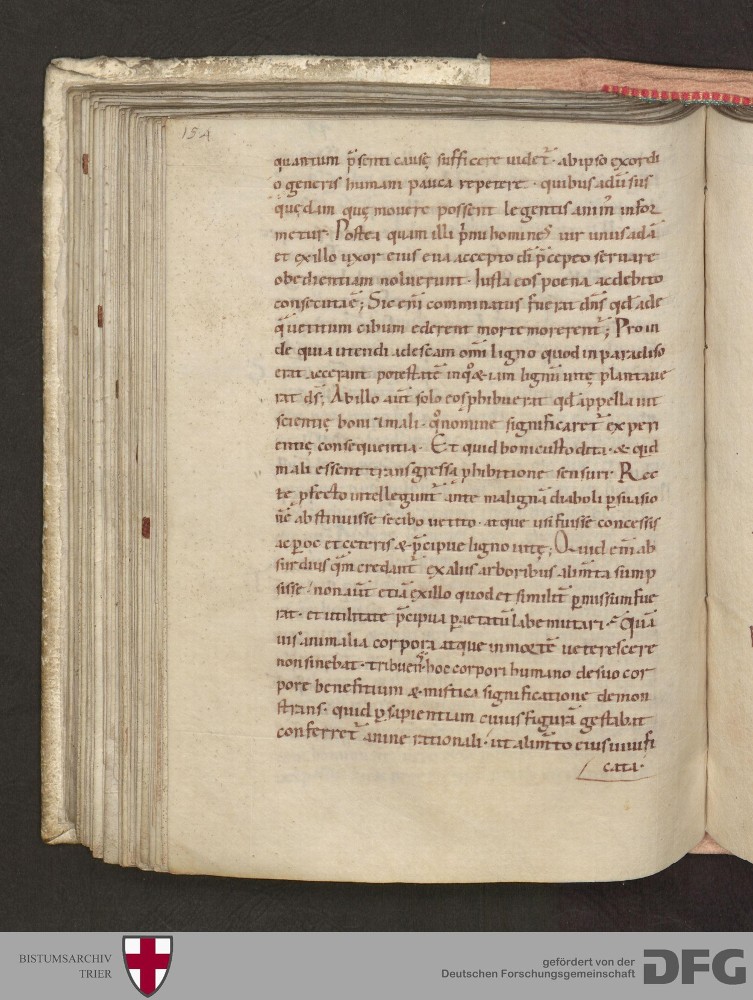 154
quantum p̄senti causę sufficere uidet᷑· ab ipso exordi
o generis humani pauca repetere· quibus aduersus
quędam quę mouere possent legentis anim̄ infor
metur· Postea quam illi p̄mi homines uir unus adā
et ex illo uxor eius eua accepto dī p̄cepto seruare
obedientiam noluerunt· Iusta eos poena ac debito
consecuta ē; Sic eni comminatus fuerat dn̄s qd̄ a de
q̄ uetitum cibum ederent morte morerent᷑; Proin
de quia utendi ad escam omī ligno quod in paradiso
erat acceperant potestatē in q̊ & iam lignū uitę plantaue
rat ds̄; Ab illo aut̄ solo eos ꝓhibuerat qd̄ appellauit
scientię boni & mali· q̊ nomine significaret᷑ experi
entię consequentia· Et quid boni custodita· & quid
mali essent transgressa ꝓhibitione sensuri· Rec
te ꝓfecto intellegunt᷑ ante malignā diaboli ꝑsuasio
nē abstinuisse se cibo uetito· atque usi fuisse concessis
ac ꝑ oc et ceteris & p̄cipue ligno uitę; Quid eni ab
surdius quā credant᷑ ex aliis arboribus alim̄ta sump
sisse· non aut̄ etiā ex illo quod et similit̄ ꝑmissum fue
rat· et utilitate p̄cipua ꝑ aetatū labe mutari· Quā
uis animalia corpora atque in mortē ueterescere
non sinebat· tribuens hoc corpori humano de suo cor
pore benefitium & mistica significatione demon
strans· quid ꝑ sapientiam cuius figurā gestabat
conferret᷑ anime rationali· ut alim̄to eius uiuifi
cata·
BISTUMSARCHIV
TRIER
gefördert von der
Deutschen Forschungsgemeinschaft
DFG